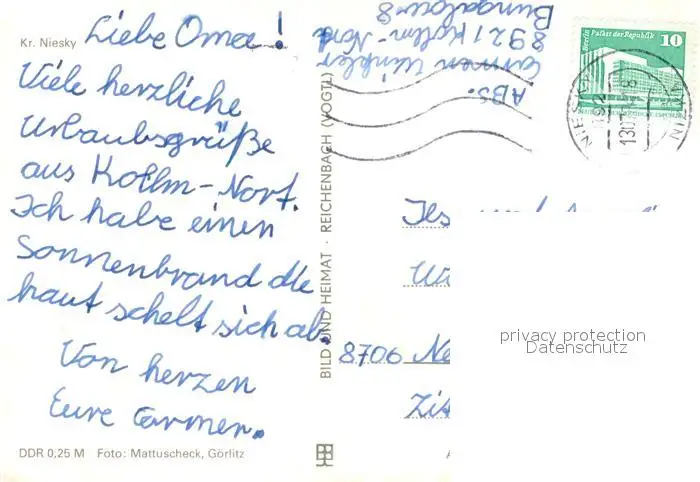 Kr. Niesky
Liebe Oma!
Viele herzliche
Urlaubsgrüße
aus Kollm-Nort.
Ich habe einen
Sonnenbrand die
haut schelt sich ab.
Von herzen
Eure Carmen.
DDR 0,25 M Foto: Mattuscheck, Görlitz
BILD UND HEIMAT · REICHENBACH (VOGTL)
ABS.
Carmen Winkler
8921 Kollm-Nord
Bungalow 8
Berlin Palast der Republik
10
8706 Ne
privacy protection
Datenschutz